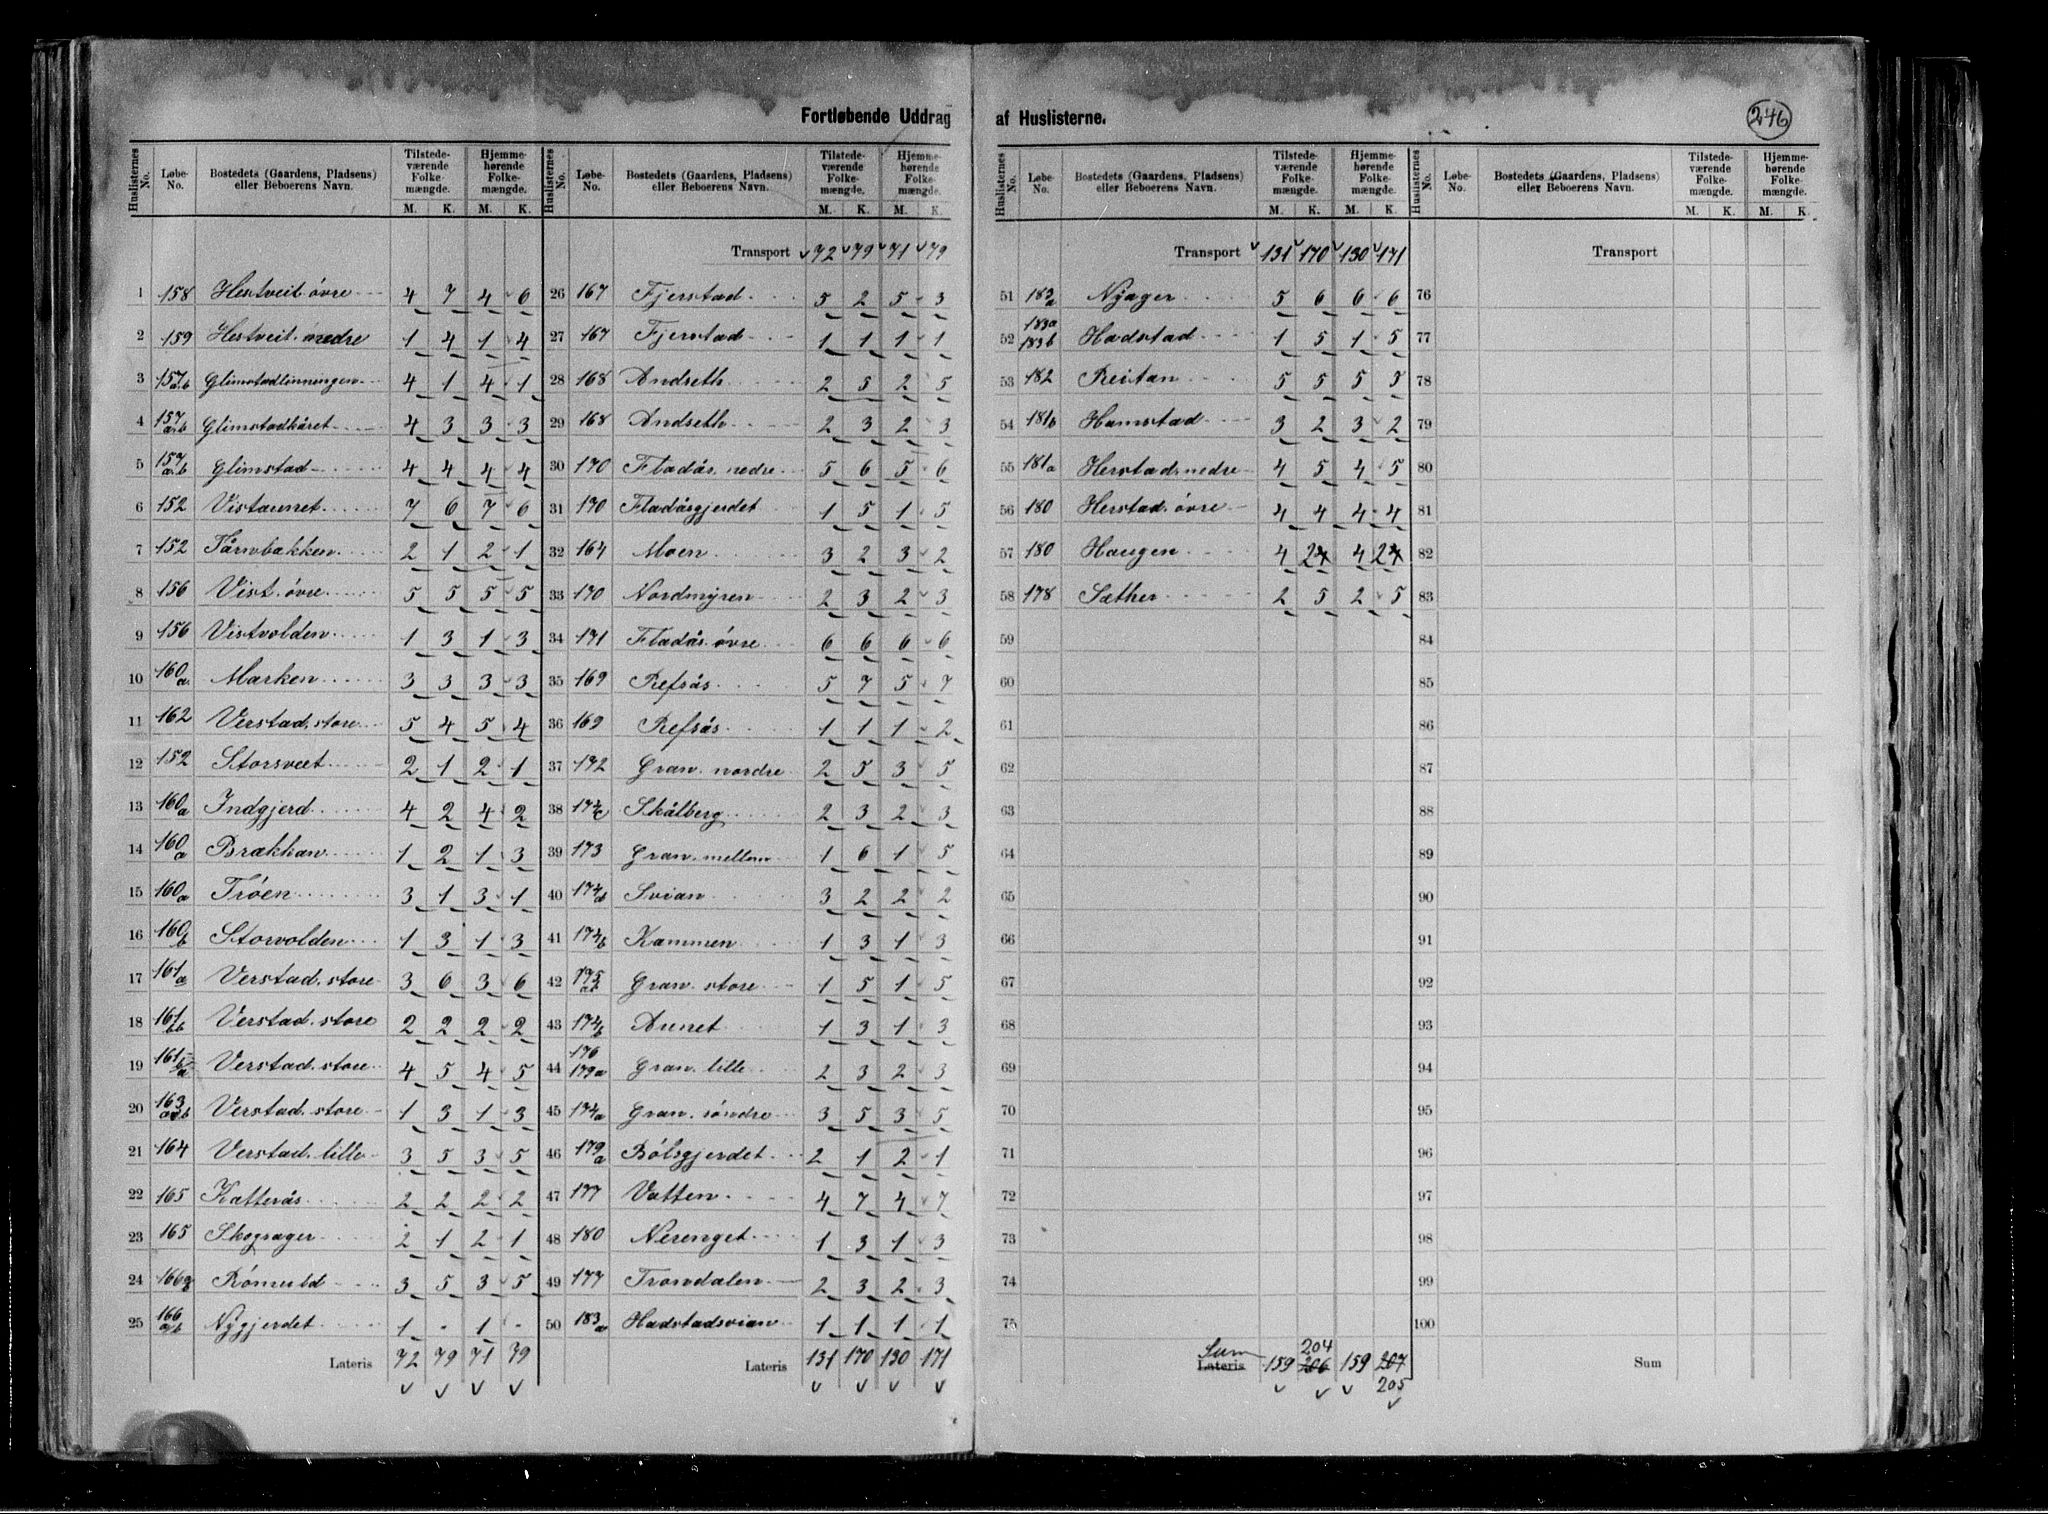 Fortløbende Uddrag af Huslisterne.
246
Huslisternes No. Løbe-No. Bostedets (Gaardens, Pladsens) eller Beboerens Navn. Tilstedeværende Folkemængde. M. K. Hjemmehørende Folkemængde. M. K.
1 158 Hestveit øvre 4 7 4 6
2 159 Hestveit nedre 1 4 1 4
3 157 a.b Glimstadlinningen 4 1 4 1
4 157 a.b Glimstadkåret 4 3 3 3
5 157 a.b Glimstad 4 4 4 4
6 152 Vistaunet 7 6 7 6
7 152 Tårnbækken 2 1 2 1
8 156 Vist. øvre 5 5 5 5
9 156 Vistvolden 1 3 1 3
10 160a Marken 3 3 3 3
11 162 Verstad. store 5 4 5 4
12 152 Storsveet 2 1 2 1
13 160a Indgjerd 4 2 4 2
14 160a Brækkan 1 2 1 3
15 160a Trøen 3 1 3 1
16 160b Storvolden 1 3 1 3
17 161a Verstad. store 3 6 3 6
18 161b Verstad. store 2 2 2 2
19 161 Verstad. store 4 5 4 5
20 163 a.b Verstad. store 1 3 1 3
21 164 Verstad. lille 3 5 3 5
22 165 Katterås 2 2 2 2
23 165 Skograger 2 1 2 1
24 166a Rømuld 3 5 3 5
25 166 a.b Nygjerdet 1 - 1 -
Lateris 72 79 71 79
Huslisternes No. Løbe-No. Bostedets (Gaardens, Pladsens) eller Beboerens Navn. Tilstedeværende Folkemængde. M. K. Hjemmehørende Folkemængde. M. K.
Transport 72 79 71 79
26 167 Fjerstad 5 2 5 3
27 167 Fjerstad 1 1 1 1
28 168 Andseth 2 5 2 5
29 168 Andseth 2 3 2 3
30 170 Fladås. nedre 5 6 5 6
31 170 Fladåsgjerdet 1 5 1 5
32 164 Moen 3 2 3 2
33 170 Nordmyren 2 3 2 3
34 171 Fladås. øvre 6 6 6 6
35 169 Refsås 5 7 5 7
36 169 Refsås 1 1 1 2
37 172 Gran. nordre 2 5 3 5
38 174c Skålberg 2 3 2 3
39 173 Gran. mellem 1 6 1 5
40 174d Svian 3 2 2 2
41 174b Kammen 1 3 1 3
42 175 Gran. store 1 5 1 5
43 174b Aunet 1 3 1 3
44 176 179a Gran. lille 2 3 2 3
45 174a Gran. søndre 3 5 3 5
46 179a Bølsgjerdet 2 1 2 1
47 177 Vatten 4 7 4 7
48 180 Nerenget 1 3 1 3
49 177 Trondalen 2 3 2 3
50 183a Hadstadsvian 1 1 1 1
Lateris 131 170 130 171
Huslisternes No. Løbe-No. Bostedets (Gaardens, Pladsens) eller Beboerens Navn. Tilstedeværende Folkemængde. M. K. Hjemmehørende Folkemængde. M. K.
Transport 131 170 130 171
51 183a Nyager 5 6 6 6
52 183a 183b Hadstad 1 5 1 5
53 182 Reitan 5 5 5 5
54 181b Hamstad 3 2 3 2
55 181a Herstad. nedre 4 5 4 5
56 180 Herstad. øvre 4 4 4 4
57 180 Haugen 4 2 4 2
58 178 Sæther 2 5 2 5
59
60
61
62
63
64
65
66
67
68
69
70
71
72
73
74
75
Sum Lateris 159 204 206 159 207 205
Huslisternes No. Løbe-No. Bostedets (Gaardens, Pladsens) eller Beboerens Navn. Tilstedeværende Folkemængde. M. K. Hjemmehørende Folkemængde. M. K.
Transport
76
77
78
79
80
81
82
83
84
85
86
87
88
89
90
91
92
93
94
95
96
97
98
99
100
Sum